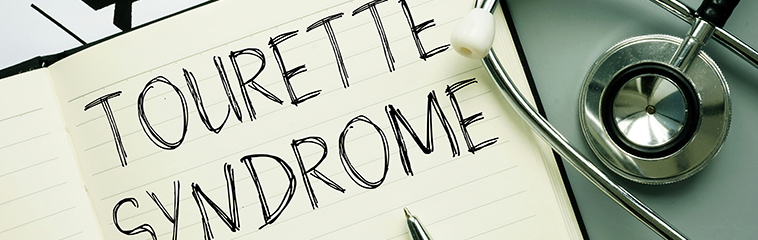 TOURETTE
SYNDROME